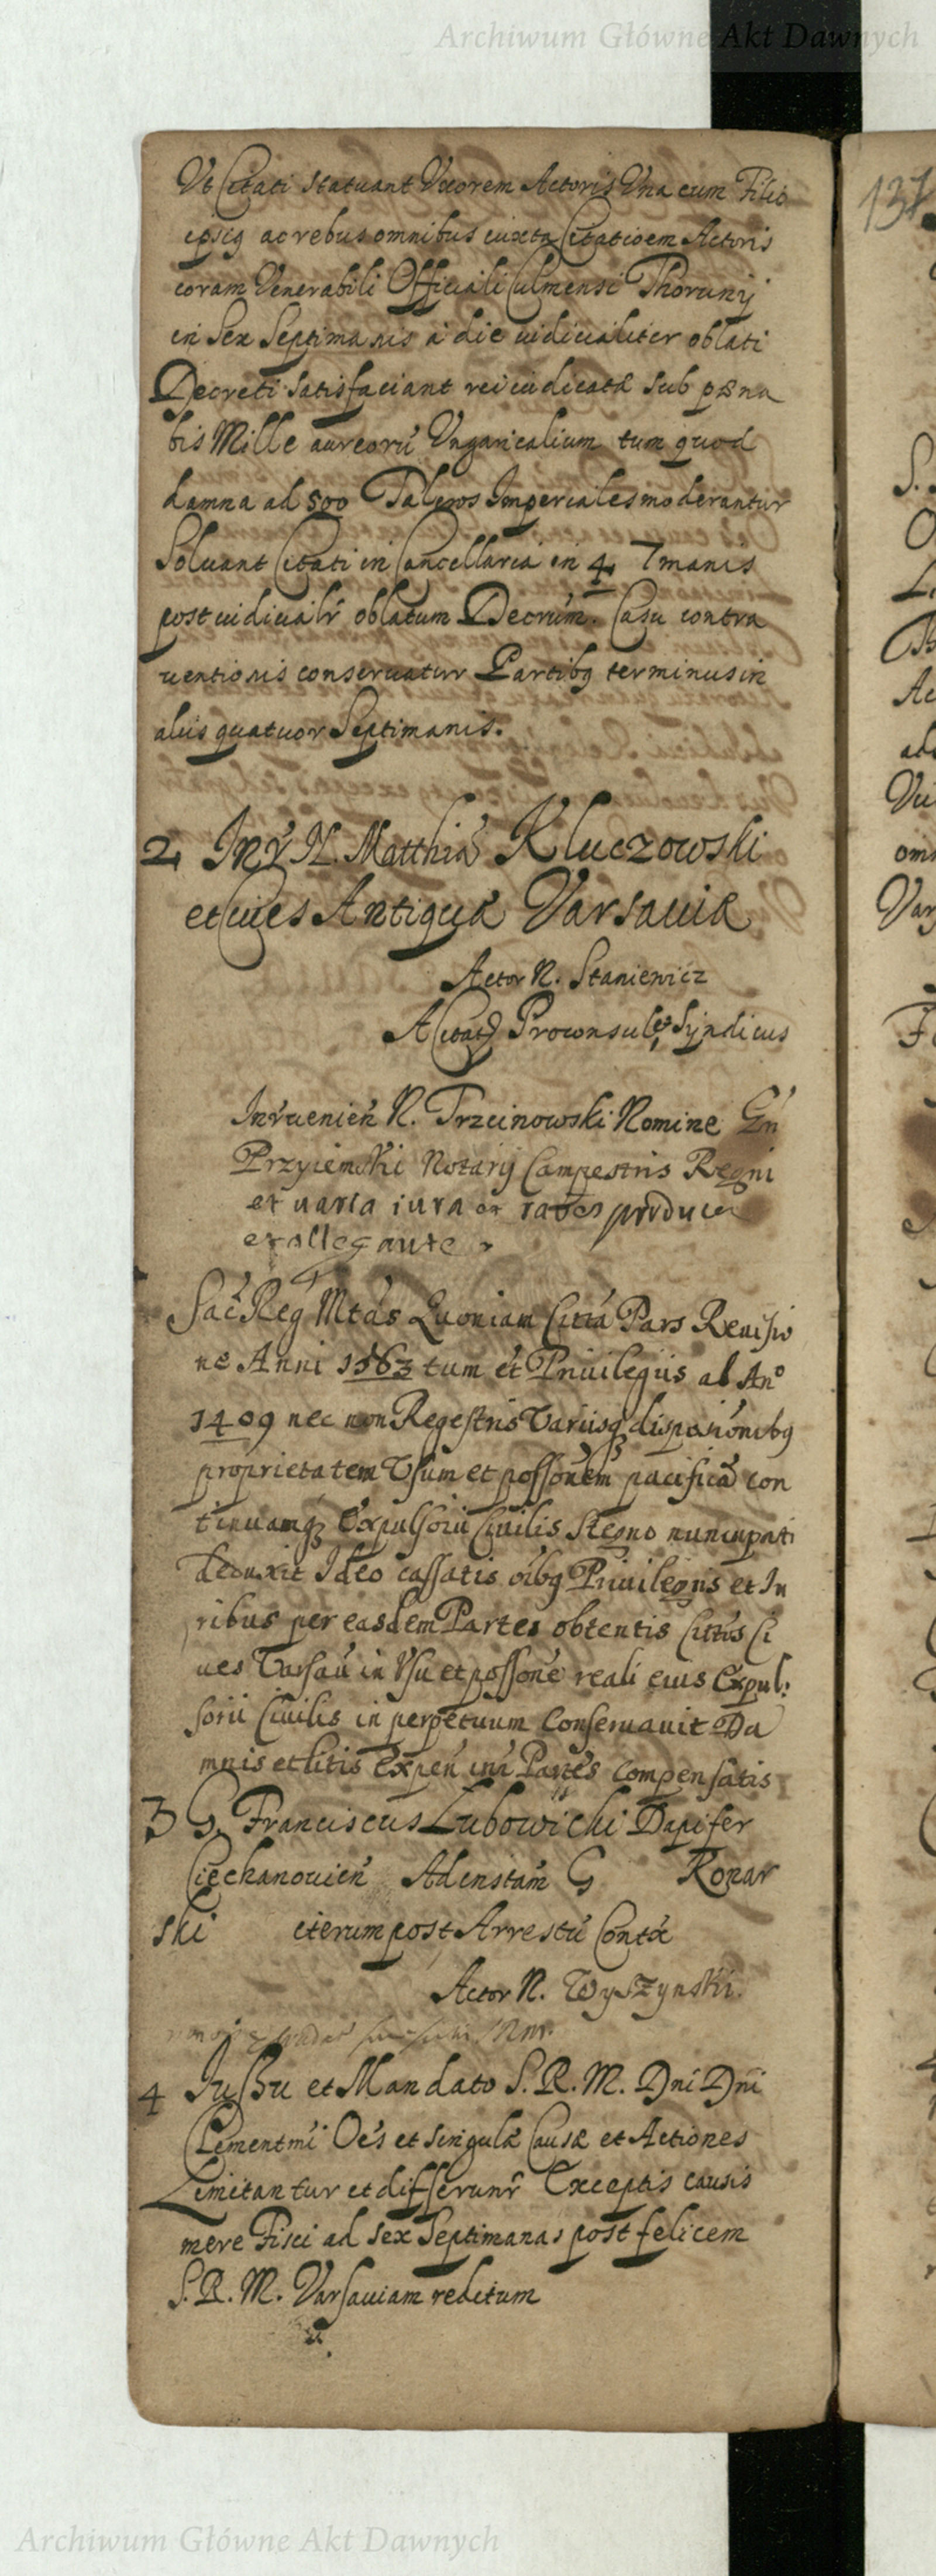 Archiwum Główne Akt Dawnych
Ut Citati statuant Uxorem Actoris Una cum Filio
ipsiq ac rebus omnibus iuxta Citatioem Actoris
coram Venerabili Officiali Culmensi Thorunij
in Sex Septimanis a die iudicialiter oblati
Decreti satisfaciant rei iudicatæ sub pœna
bis Mille aureorū Ungaricalium tum quod
damna ad 500 Taleros Imperiales moderantur
Soluant Citati in Cancellaria in 4 7manis
post iudicialr oblatum Decrum. Casu contra
uentionis conseruatur Partibq terminus in
aliis quatuor Septimanis.
2 Intr N. Matthiā Kluczowski
et Ciues Antiquæ Varsauiæ
Actor N. Staniewicz
A Citatq Proconsul et Syndicus
Interuenien N. Trzcinowski Nomine Gn
Przyiemski Notarij Campestris Regni
et varia iura et rates producen
et allegante
Sac Reg Mtas Quoniam Citta Pars Reuisio
ne Anni 1563 tum et Priuilegiis ab Ano
1409 nec non Regestris Variisq dispositionibq
proprietatem Usum et possonem pacificā con
tinuamq Expulsorii Ciuilis Stegno nuncupati
deduxit Ideo cassatis oibq Priuilegiis et Iu
ribus per easdem Partes obtentis Cittos Ci
ues Varsau in Usu et possone reali eius Expul:
sorii Ciuilis in perpetuum Conseruauit Da
mnis et litis Expen intr Partes compensatis
3 G. Franciscus Lubowicki Dapifer
Ciechanouien Ad instam G Konar
ski iterum post Arrestū Conta
Actor N. Wyszynski.
4 Iussu et Mandato S. R. M. Dni Dni
Clementmi Oes et singulæ Causæ et Actiones
Limitantur et differuntr Exceptis causis
mere Fisci ad sex Septimanas post felicem
S. R. M. Varsauiam reditum
137
Archiwum Główne Akt Dawnych